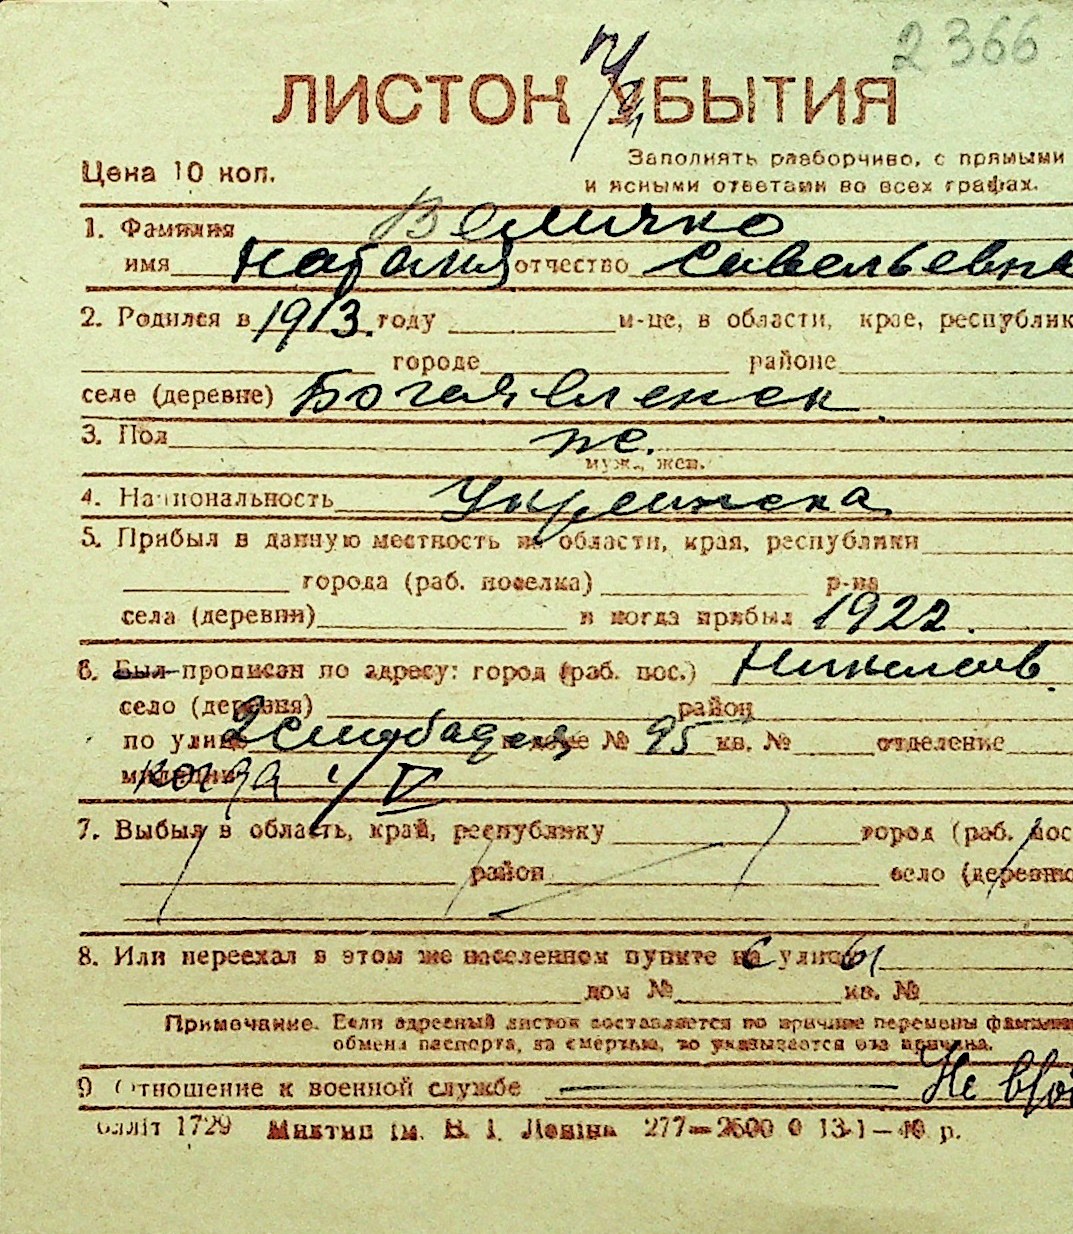 2366
ЛИСТОК УБЫТИЯ
Цена 10 коп.
Заполнять разборчиво, с прямыми
и ясными ответами во всех графах.
1. Фамилия Величко
имя Наталия отчество Савельевна
2. Родился в 1913 году м-це, в области, крае, республик
городе районе
селе (деревне) Богоявленск
3. Пол ж.
муж., жен.
4. Национальность Украинска
5. Прибыл в данную местность из области, края, республики
города (раб. поселка) р-на
села (деревни) и когда прибыл 1922.
6. Был прописан по адресу: город (раб. пос.) Николаев
село (деревня) район
по улице 2 слободская в доме № 95 кв. № отделение
милиции когда 1/V
7. Выбыл в область, край, республику город (раб. пос
район село (деревню
8. Или переехал в этом же населенном пункте на улицу
дом № кв. №
Примечание. Если адресный листок составляется по причине перемены фамилии
обмена паспорта, за смертью, то указывается эта причина.
9 Отношение к военной службе Не
блліт 1729 Миктип ім. В. І. Леніна 277—2500 0 13-1—40 р.